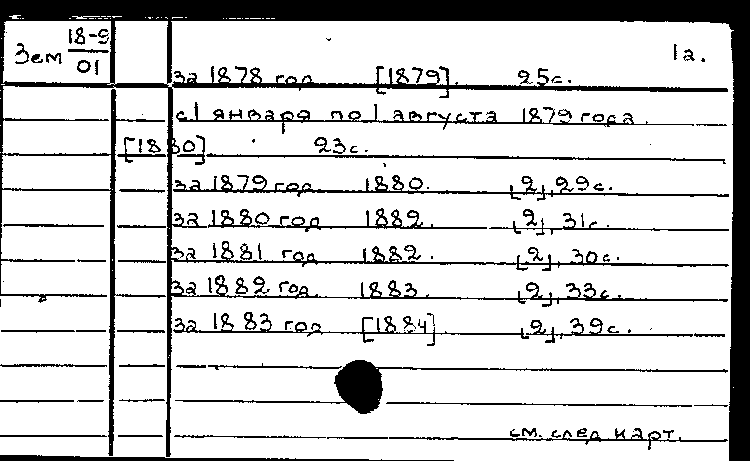 Зем 18-9/01
1а.
за 1878 год [1879]. 25с.
с 1 января по 1 августа 1879 года.
[1880]. 23с.
за 1879 год 1880. [2], 29с.
за 1880 год 1882. [2], 31с.
за 1881 год 1882. [2], 30с.
за 1882 год. 1883. [2], 33с.
за 1883 год [1884] [2], 39с.
см. след карт.